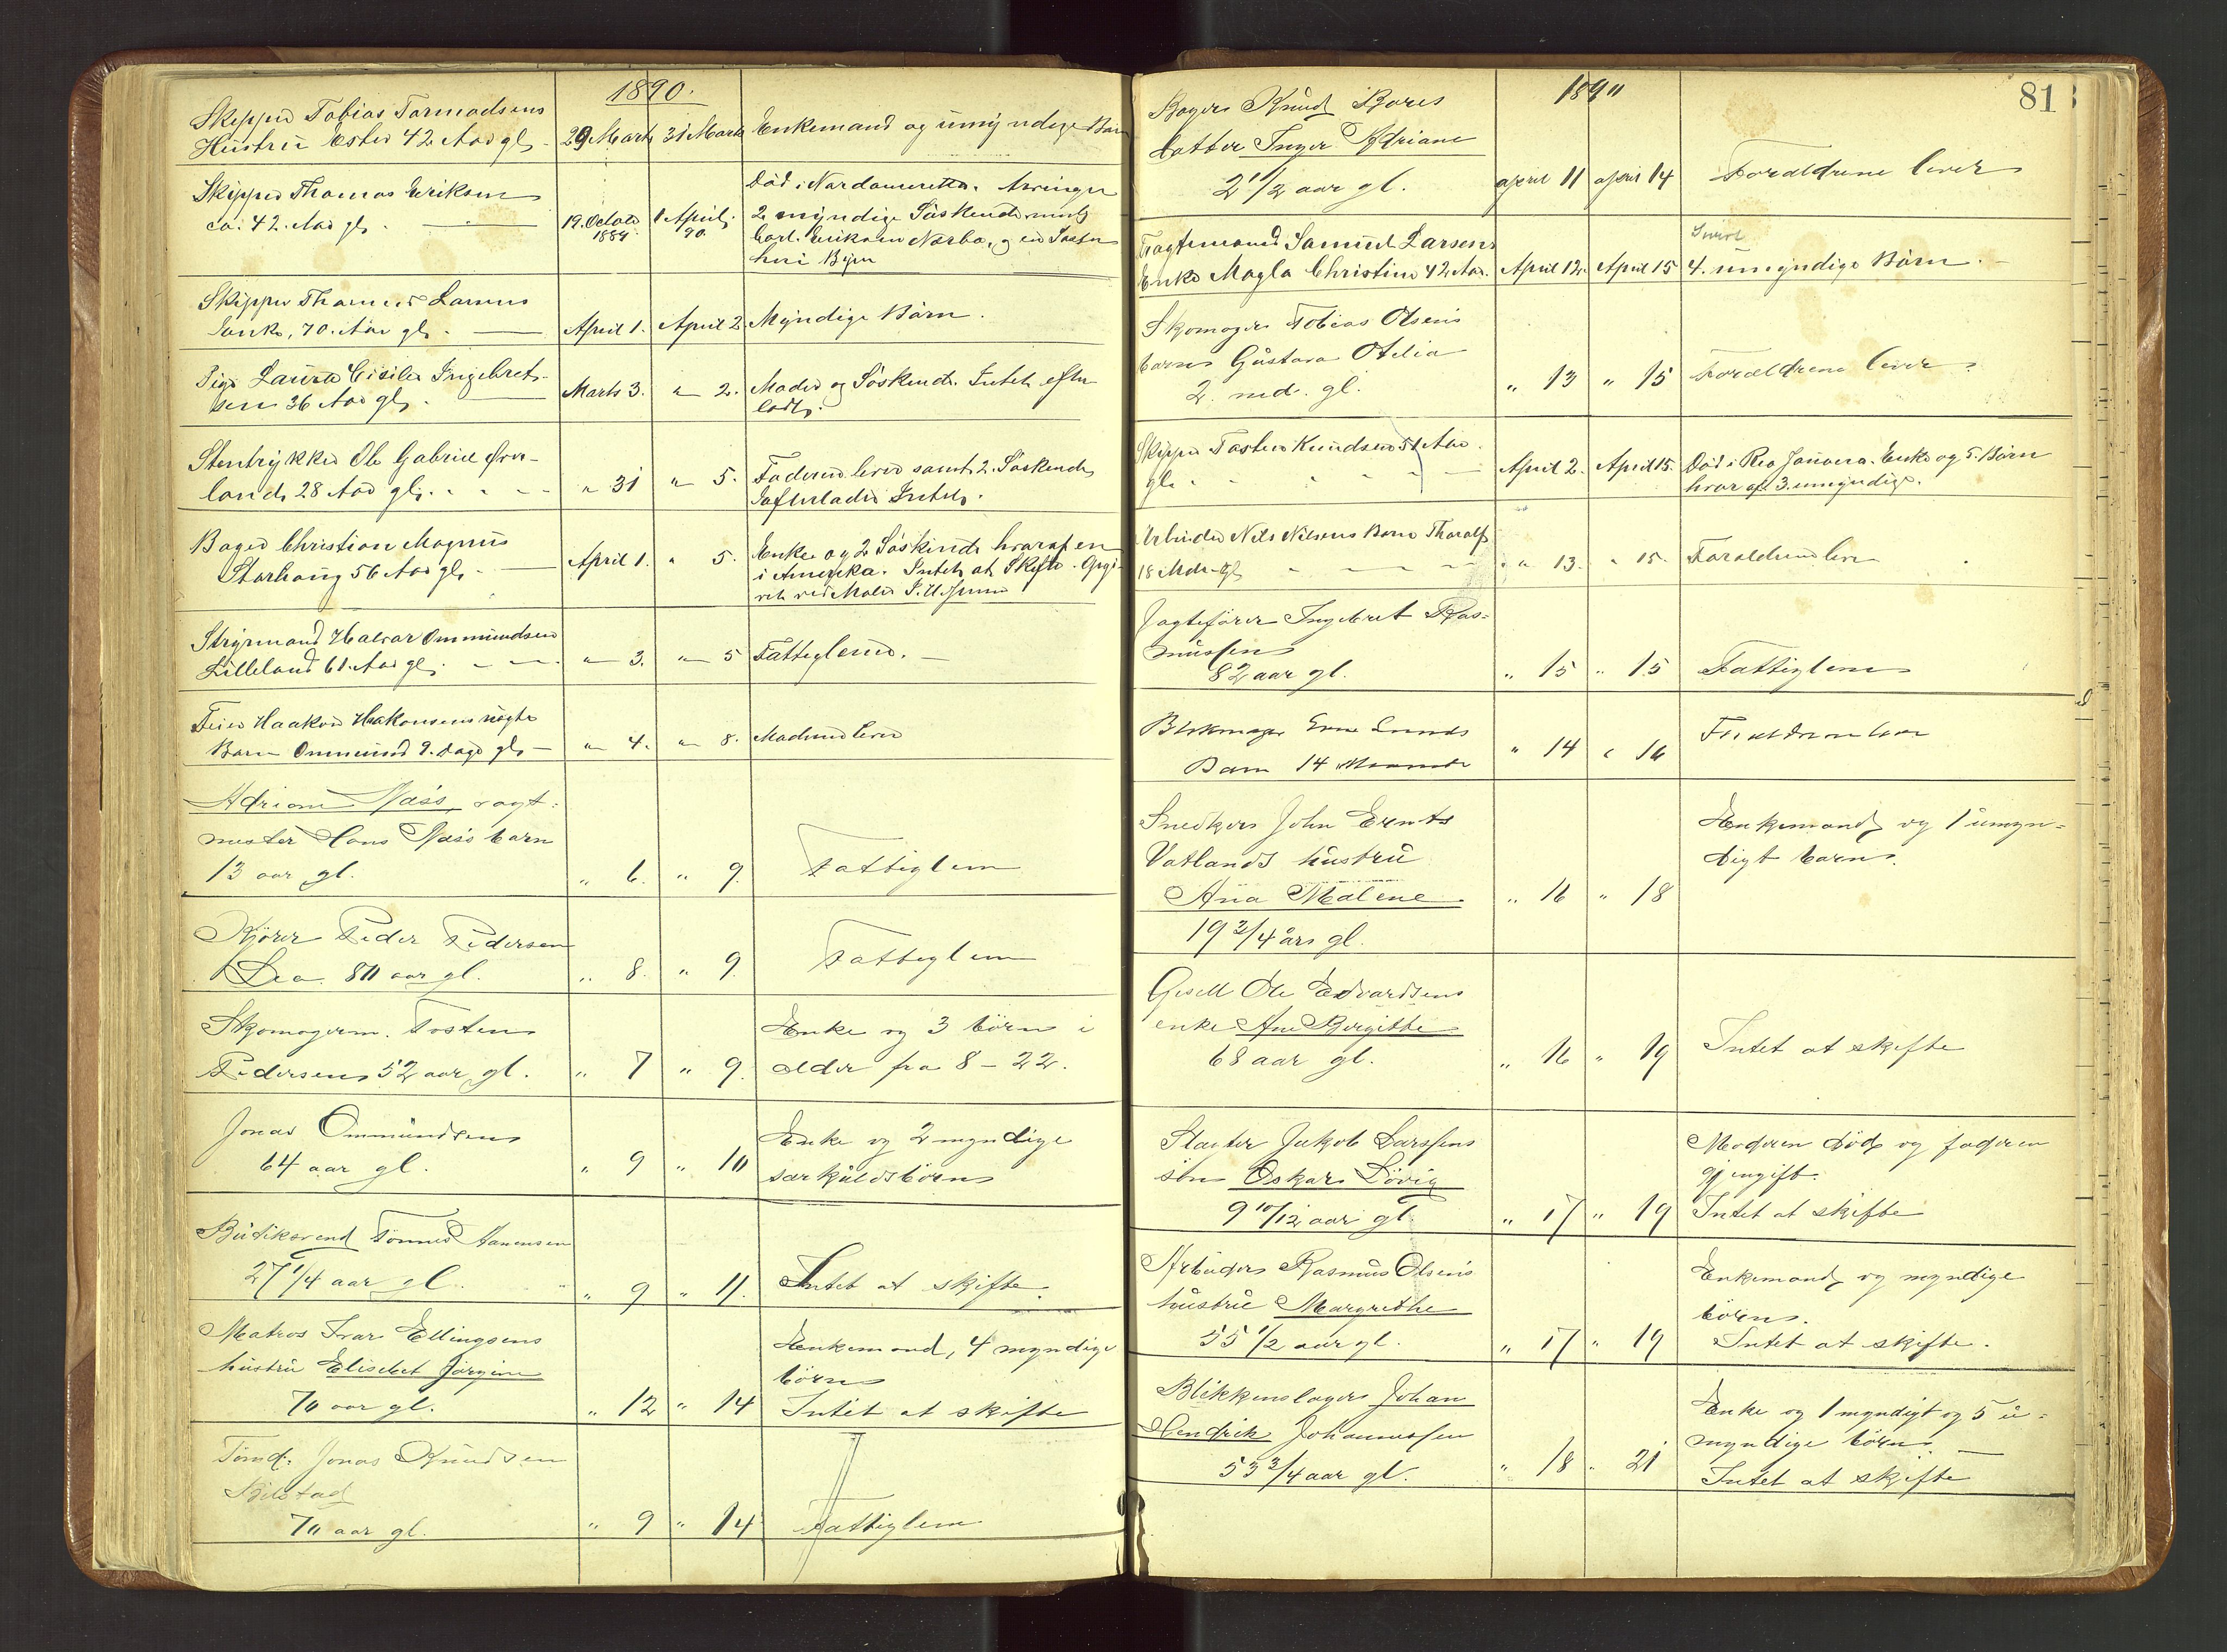 1890.
Skipper Tobias Tormodsens
Hustru Ester 42 Aar gl.
29 Marts
31 Marts
Enkemand og umyndige Børn
Skipper Thomas Eriksen
ca. 42. Aar gl.
19. Octobr
1889
1 April
90.
Død i Nordamerika. Arvinger
2 myndige Søskende
Carl Eriksen Nærbø, og en Søster
her i Byen
Skipper Thomas Larsens
Enke, 70. Aar gl.
April 1.
April 2
Myndige Børn.
Pige Laura Cicilie Ingebret-
sen 36 Aar gl.
Marts 3.
" 2.
Moder og Søskende. Intet efter
ladt.
Stentrykker Ole Gabriel
land, 28 Aar gl.
" 31
" 5.
Faderen lever samt 2. Søskende
Efterlader Intet.
Bager Christian Magnus
Storhaug 56 Aar gl.
April 1.
" 5.
Enke og 2 Søskende hvoraf en
i Amerika. Intet at Skifte.
Styrmand Halvor Ommundsen
Lilleland 61. Aar gl.
" 3.
" 5
Fattiglem.
Feier Haakon Haakonsens uægte
Barn Ommund 9. Dage gl.
" 4.
" 8.
Moderen lever
Adrian Næss, vagt-
mester Hans Næss barn
13 aar gl.
" 6.
" 9.
Fattiglem
Kjører Peder Pedersen
Lea. 80 aar gl.
" 8.
" 9.
Fattiglem
Skomagerm. Tosten
Pedersen 52 aar gl.
" 7
" 9.
Enke og 3 børn i
alder fra 8 – 22.
Jonas Ommundsen
64 aar gl.
" 9
" 10
Enke og 2 myndige
særkuldsbørn
Budikarend Tønnes Aanensen
27 1/4 aar gl.
" 9
" 11.
Intet at skifte.
Matros Ivar Ellingsens
hustru Elisebet Jørgine
70 aar gl.
" 12
" 14
Enkemand, 4 myndige
børn
Intet at skifte
Tømd. Jonas Knudsen
70 aar gl.
" 9
" 14
Fattiglem
1890
81
Bager Knud Bores
datter Inger Adriane
2 1/2 aar gl.
april 11
april 14
Forældrene lever
Fragtemand Samuel Larsens
Enke Magla Christine 42 Aar.
April 12.
April 15
4. umyndige Børn.
Skomager Tobias Olsens
barn Gustava Otelia
2. md. gl.
" 13
" 15
Forældrene lever.
Skipper Tosten Knudsen 51 Aar
gl.
April 2.
April 15.
Død i Rio Janero. Enke og 5. Børn
hvoraf 3. umyndige.
Arbeider Nils Nilsens Barn Tharalf
18 Mdr. gl.
" 13.
" 15.
Forældrene lever
Jagtefører Ingebret Ras-
mussen
82 aar gl.
" 15
" 15
Fattiglem
Barn 14 Maaneder
" 14
" 16
Forældrene lever
Snedker John Ernts
Vatlands hustru
Ana Malene.
19 3/4 års gl.
" 16
" 18
Enkemand og 1 umyn-
digt barn.
Gesell Ole Edvardsens
enke Ane Birgitte
68 aar gl.
" 16
" 19
Intet at skifte
Slagter Jakob Larssens
søn Oskar Løvig
9 10/12 aar gl.
" 17
" 19
Moderen død og faderen
gjengift.
Intet at skifte
Arbeider Rasmus Olsens
hustru Margrethe
55 1/2 aar gl.
" 17
" 19
Enkemand og myndige
børn.
Intet at skifte.
Blikkenslager Johan
Hendrik Johannessen
53 3/4 aar gl.
" 18
" 21
Enke og 1 myndigt og 5 u-
myndige børn.
Intet at skifte